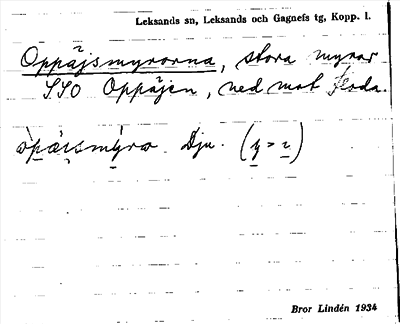 Leksands sn, Leksands och Gagnefs tg, Kopp. l.
Oppåjsmyrorna, stora myrar
SSO Oppåjen, ned mot Floda.
Dju. (y > ɩ)
Bror Lindén 1934